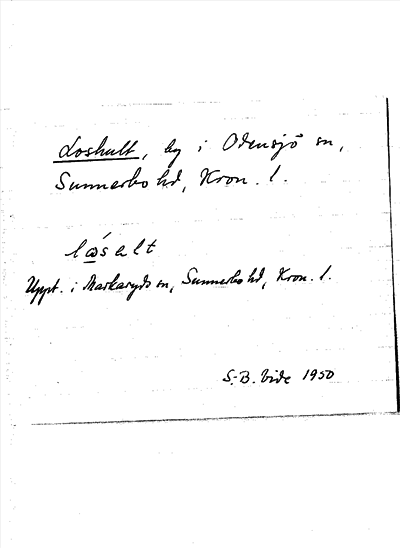 Loshult, by i Odensjö sn,
Sunnerbo hd, Kron. l.
lǫ́salt
Uppt. i Markaryds sn, Sunnerbo hd, Kron. l.
S.-B. Vide 1950